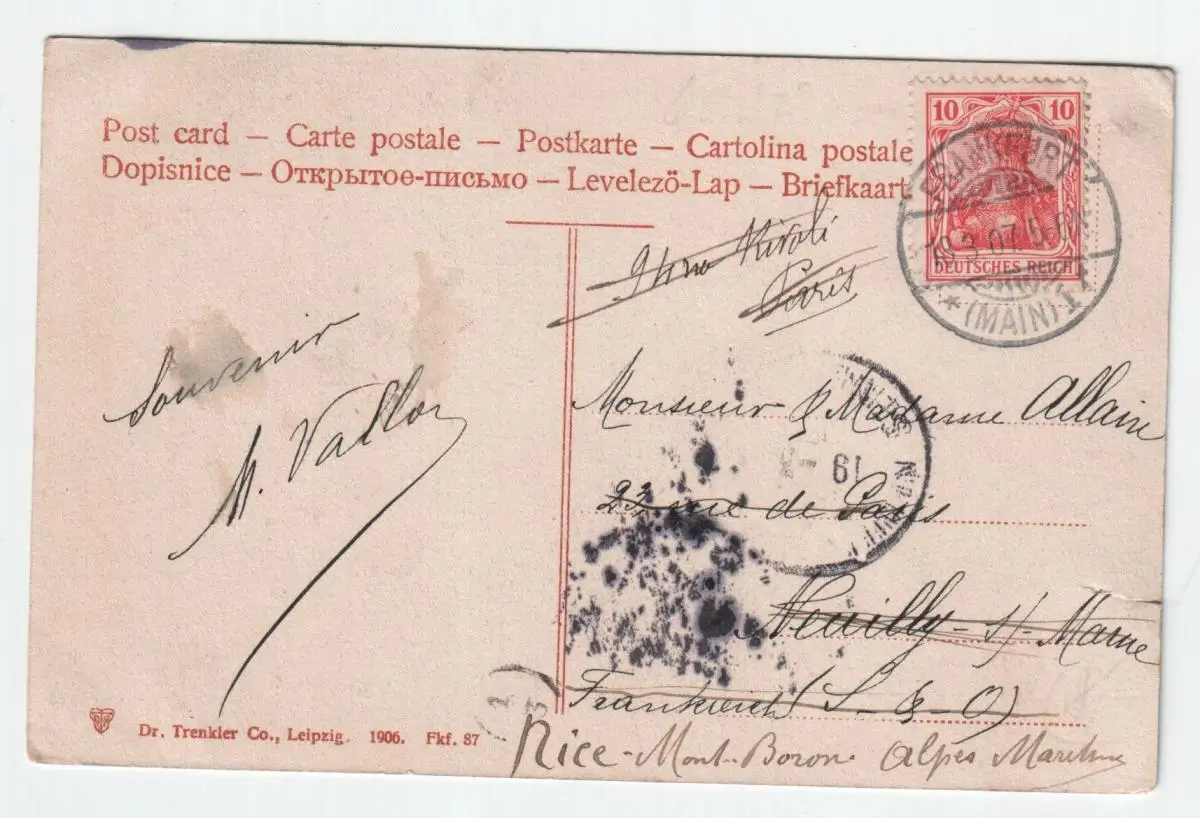 Post card – Carte postale – Postkarte – Cartolina postale
Dopisnice – Открытое-письмо – Levelezö-Lap – Briefkaart
10 10
DEUTSCHES REICH
FRANKFURT
3.07.5-6
* (MAIN) 1
Paris
Souvenir
M. Vallon
Monsieur & Madame Allain
19
23 rue de Paris
Neuilly-s/-Marne
Frankreich (S-&-O)
Nice-Mont-Boron Alpes Maritimes
Dr. Trenkler Co., Leipzig. 1906. Fkf. 87